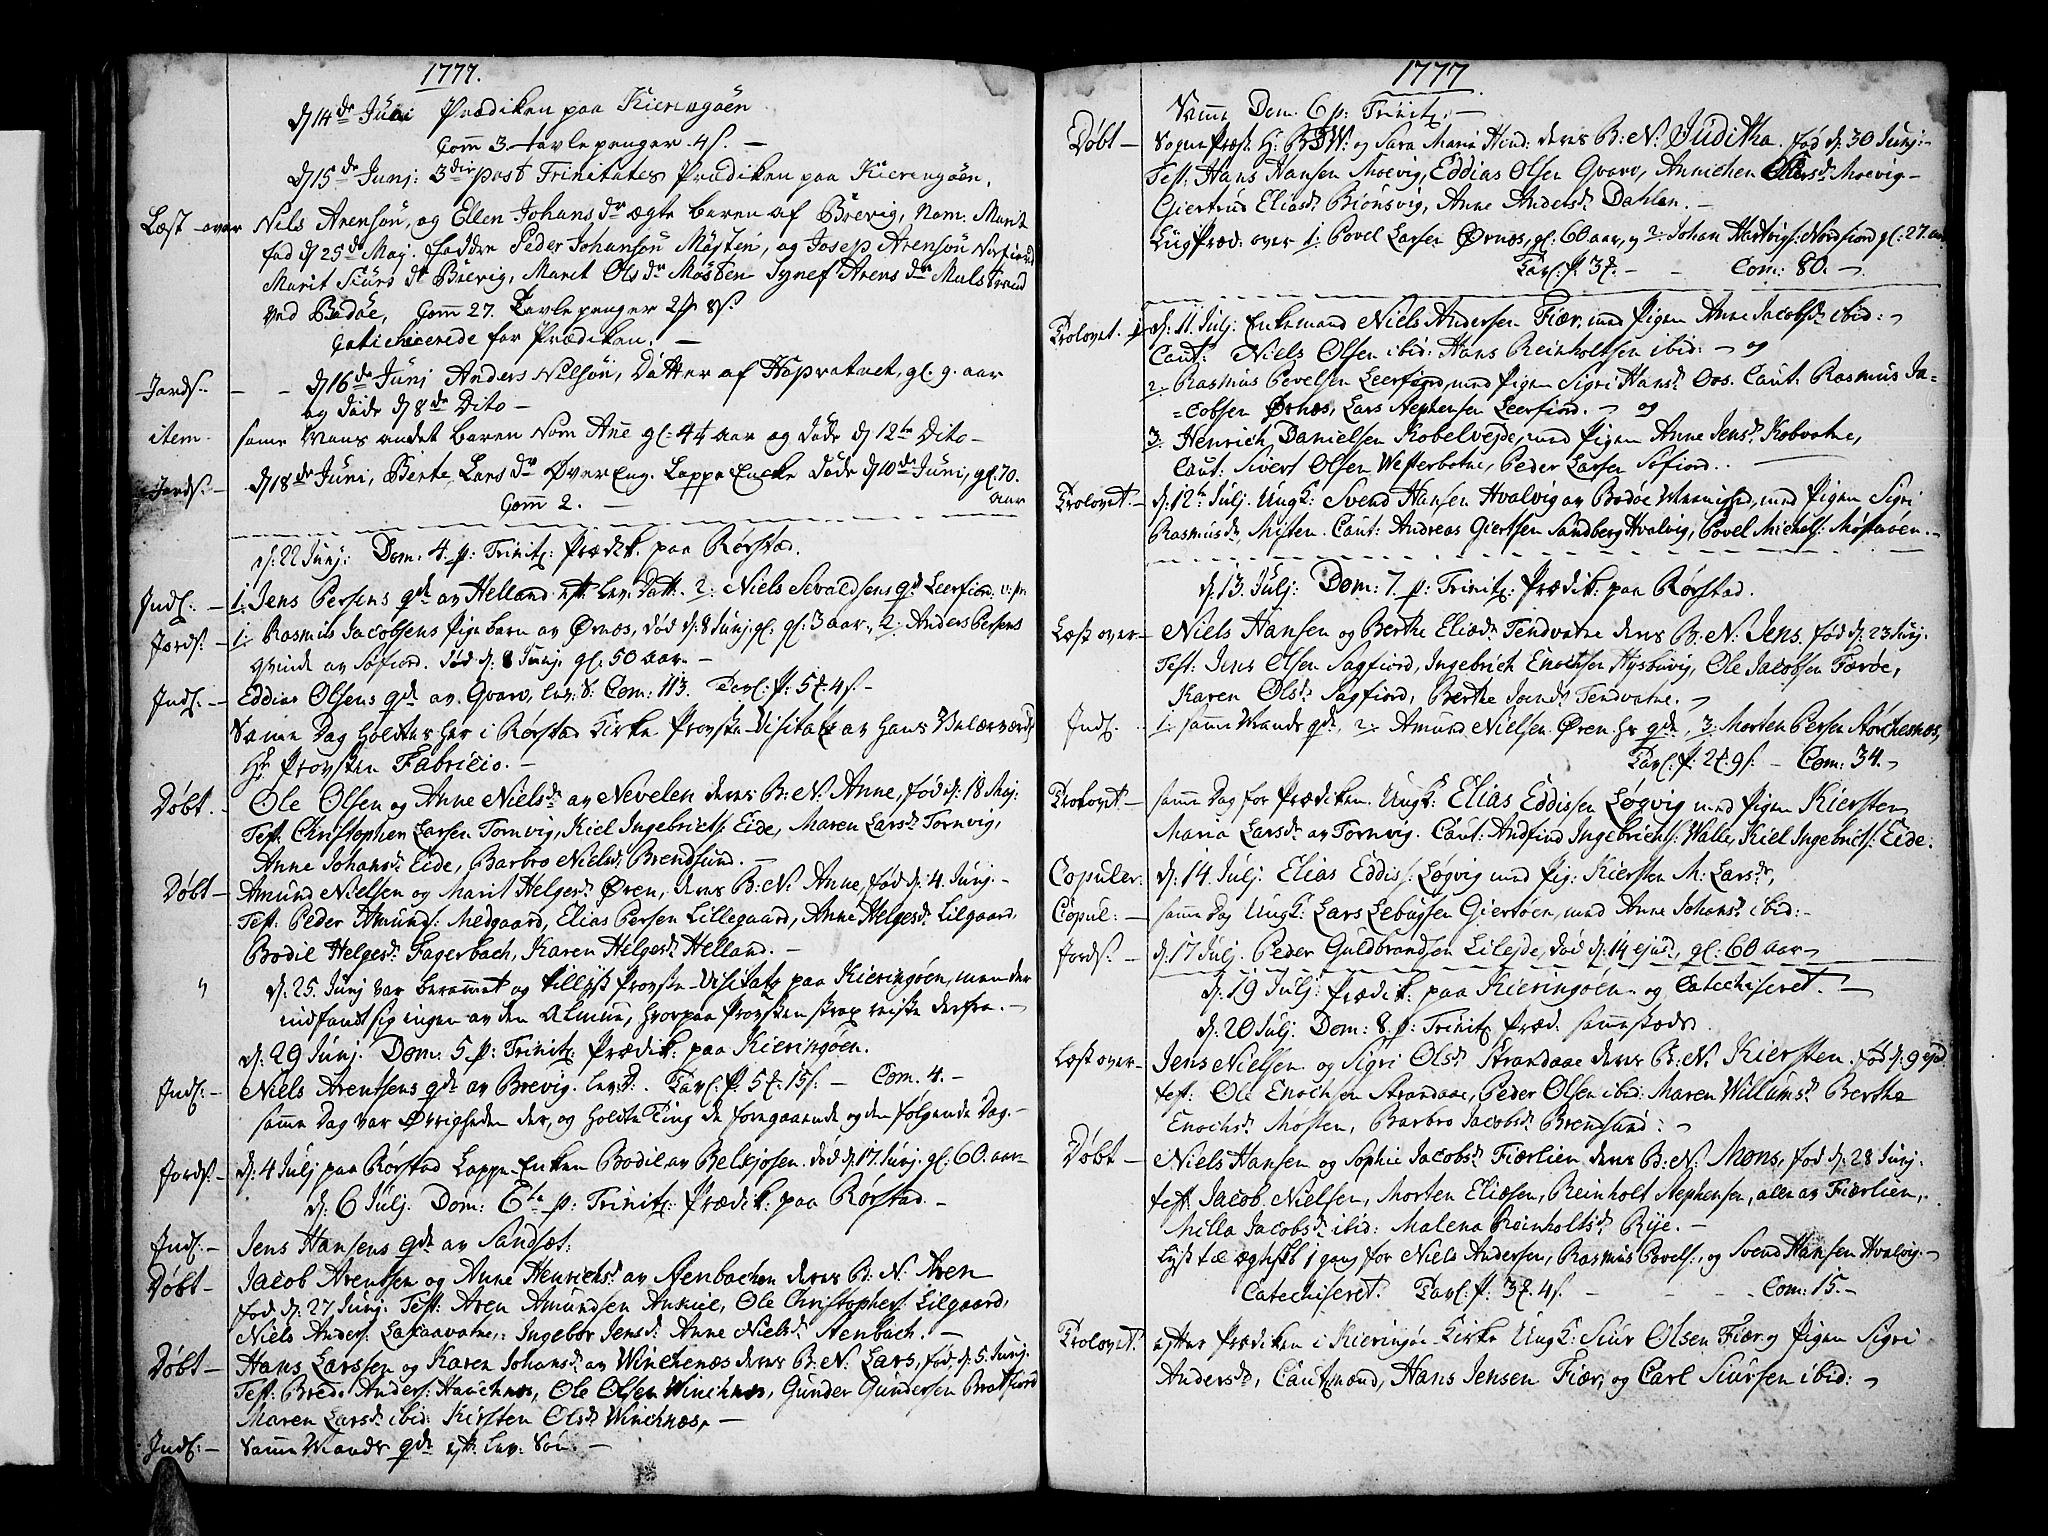 1777.
d 14de Juni Prædiken paa Kieringøen
Com 3. tavlepenger 4 s. —
d 15de Junj: 3die post Trinitates Prædiken paa Kieringøen.
Læst over Nils Arensøn, og Ellen Johansdr ægte baren af Brevig, Nom. Marit
fød d 25de Maj. faddre Peder Johansøn Møsten, og Josep Arensøn Norfiord
Marit Siursdr Brevig, Marit Olsdr Møsten Synef Arensdr Mulstrand
ved Bodøe, Com 27. Tavlepenger 8 s.
Catichicerede for Prædiken. —
Jords. — — d 16de Junj Anders Nilsøn, Datter af Hopvatnet, gl. 9. aar
og døde d 8de Dito —
item. same Mans andet baren Nom Ane gl: 4½ aar og døde d 12te Dito —
Jords. — d 18de Juni, Berte Larsdr ØverEng. Lappe Encke døde d 10de Juni, gl 70.
aar
Com 2. —
d: 22 Junj: Dom: 4. p: Trinit: Prædik. paa Rørstad.
Indl. — 1. Jens Persens qde av Helland eft. lev. Datt. 2: Niels Sivaldsens qde Leerfiord.
Jords. — 1. Rasmus Jacobsens Pigebarn av Ørnæs, død d: 8 Junj. gl. 3 aar, 2: Anders Persens
Qvinde av Søfiord. død d. 8 Junj. gl: 50 aar. —
Indl. — Eddias Olsens qde av Qvarv, lev. S: Com: 113. Tavl: p: 5 4 s. —
Samme Dag holdtes her i Rørstad Kirke Provste Visitatz av hans Velærværd
Hr Provsten Fabricio. —
Døbt. — Ole Olsen og Anne Nielsdr av Nevelen deres B: N: Anne, fød d: 18 Maj:
Test: Christopher Larsen Tornvig, Kiel Ingebrietss: Eide, Maren Larsdr Tornvig,
Anne Johansdr Eide, Barbro Nielsdr Brendsund. —
Døbt — Amund Nielsen og Marit Helgesdr Øren, deres B: N: Anne, fød d: 4 Junj. —
Test: Peder Amunds: Medgaard, Elias Persen Lillegaard, Anne Helgesdr Lilgaard,
Bodil Helgesdr Fagerbach, Karen Helgesdr Helland. —
d: 25. Junj var berammet og tillyst Provste-Visitatz paa Kieringøen, men der
indfandt sig ingen av den Almue, hvorpaa Provsten strax reiste derfra. —
d: 29 Junj. Dom: 5 p: Trinit: Prædik: paa Kieringøen.
Indl: — Niels Arentsens qde av Brevig. lev: D: Tavl: p 5 15 s. — Com. 4. —
samme Dag var Øvrigheden der, og holdte Ting de foregaaende og den følgende Dag. —
Jords. — d: 4 Julj paa Rørstad Lappe-Enken Bodil av Belkjosen. død d: 17. Junj. gl: 60. aar —
d: 6 Julj. Dom: 6te p: Trinit: Prædik: paa Rørstad. —
Indl. — Jens Hansens qde av Sandsæt:
Døbt — Jacob Arentsen og Anne Henrichsdr av Stenbachen deres B: N: Aren
fød d: 27 Junj. Test: Aren Amundsen Ole Christophers: Lilgaard,
Niels Anders: Laxaavatne,: Ingebor Jensdr Anne Nielsdr Stenbach. —
Døbt — Hans Larssen og Karen Johansdr av Winchenæs deres B: N: Lars, fød d: 5 Junj.
Test: Brede Anders: Hauchnæs, Ole Olsen Winchnæs, Gunder Gundersen Bratfiord
Maren Larsdr ibid: Kirsten Olsdr Winchnæs, —
Indl: — Samme Mands qde eft. lev. Søn. —
1777
Samme Dom. 6 p: Trinit. —
Døbt — Sogne Præst: H: BSW: og Sara Maria Hind: deres B: N: Juditha. fød d: 30 Junj: —
Test: Hans Hansen Moevig, Eddias Olsen Qvarv, Annichen Moevig —
Giertrud Eliasdr Biønsvig, Anne Andersdr Dahlen. —
Liig Præd: over 1: Povel Larsen Ørnæs, gl: 60 aar, og 2: Johan Hartvigs: Nordfiord gl: 27. aar
Tavl: p. 3 — — Com: 80. —
Trolovet. d: 11 Julj. Enkemand Niels Andersen Fiær, med Pigen Anne Jacobsdr ibid:
Caut: Niels Olsen ibid: Hans Reinholtsen ibid: og
2. Rasmus Pevelsen Leerfiord, med Pigen Sigri Hansdr Oos. Caut: Rasmus Ja=
=cobsen Ørnæs, Lars Stephensen Leerfiord. og
3. Henrich Danielsen Kobelvejde, med Pigen Anne Jensdr Kobvatne,
Caut: Sivert Olsen Westerbotne, Peder Larsen Søfiord.
Trolovet. — d: 12te Julj. Ungk: Svend Hansen Hvalvig av Bodøe Meenighed, med Pigen Sigri
Rasmusdr Misten. Caut: Andreas Giertsen Sandberg Hvalvig, Povel Michels: Møstøen. —
d. 13. Julj: Dom: 7. p: Trinit: Prædik: paa Rørstad.
Læst over — Niels Hansen og Berthe Eliædr Tendvatne deres B: N: Jens. fød d: 23 Junj.
Test: Jens Olsen Sagfiord, Ingebrich Enochsen Hysbuvig, Ole Jacobsen Færøe,
Karen Olsdr Sagfiord, Berthe Joendr Tendvatne.
Indl. 1. samme Mands qde, 2: Amund Nielsen Øren hs qde, 3. Morten Persen Storchesnæs,
Tavl: p. 2 9 s. — Com: 34.
Trolovet — samme Dag for Prædiken. Ungk: Elias Eddissen Løgvig med Pigen Kiersten
Maria Larsdr av Tornvig. Caut: Andfind Ingebriens: Walle, Kiel Ingebriets: Eide.
Copuler: d: 14. Julj Elias Eddiss: Løgvig med Pig: Kiersten M: Larsdr,
Copul: — samme Dag Ungk: Lars Lebussen Giertøen, med Anne Johansdr ibid: —
Jords. — d: 17 Julj. Peder Guldbrandsen Lilejde, død d: 14 ejusd, gl: 60 aar
d: 19 Julj: Prædik: paa Kieringøen. og Catechiseret. —
d: 20 Julj. Dom: 8. p: Trinit: Præd. sammestæds.
Læst over — Jens Nielsen og Sigri Olsdr Strandaae deres B: N: Kiersten. fød d: 9 ejusd.
test: Ole Enochsen Strandaae, Peder Olsen ibid: Maren Willumsdr Berthe
Enochsdr Møsten, Barbro Jacobsdr Brensund:
Døbt — Niels Hansen og Sophie Jacobsdr Fiærlien deres B: N: Mons, fød d: 28 Junj.
test. Jacob Nielsen, Morten Eliæsen, Reinholt Stephensen, alle av Fiærlien,
Milla Jacobsdr ibid: Malena Reinholtsdr Rije. —
Lyst til ægtesk: 1 gang for Niels Andersen, Rasmus Povels:, og Svend Hansen Hvalvig. —
Catechiseret. Tavl: p: 3 4 s. — — — Com: 15. —
Trolovet. efter Prædiken i Kieringøe Kirke Ungk: Siur Olsen Fiær og Pigen Sigri
Andersdr, Cautmænd, Hans Jensen Fiær, og Carl Siursen ibid: